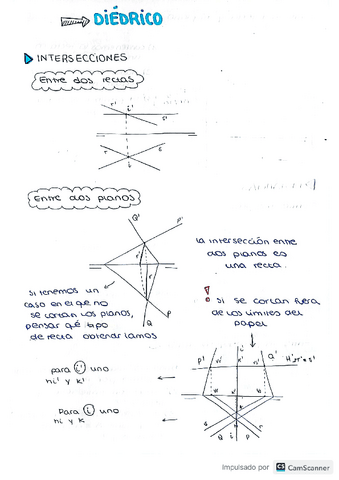 DIÉDRICO
INTERSECCIONES
Entre dos rectas
r'
i'
s'
r
s
i
Entre dos planos
Q'
P'
r'
r
P
Q
la intersección entre
dos planos es
una recta.
Si tenemos un
caso en el que no
se cortan los planos,
pensar qué tipo
de recta obtendríamos
Si se cortan fuera
de los límites del
papel
P'
Q'
i'
para i' uno
hi' y k'
Para i uno
hi y k
Q
i
P
Impulsado por CS CamScanner